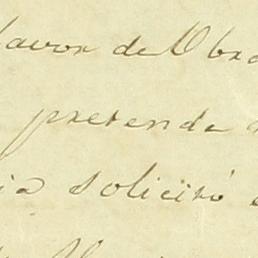 favor de Obra
pretende
ia solicitó